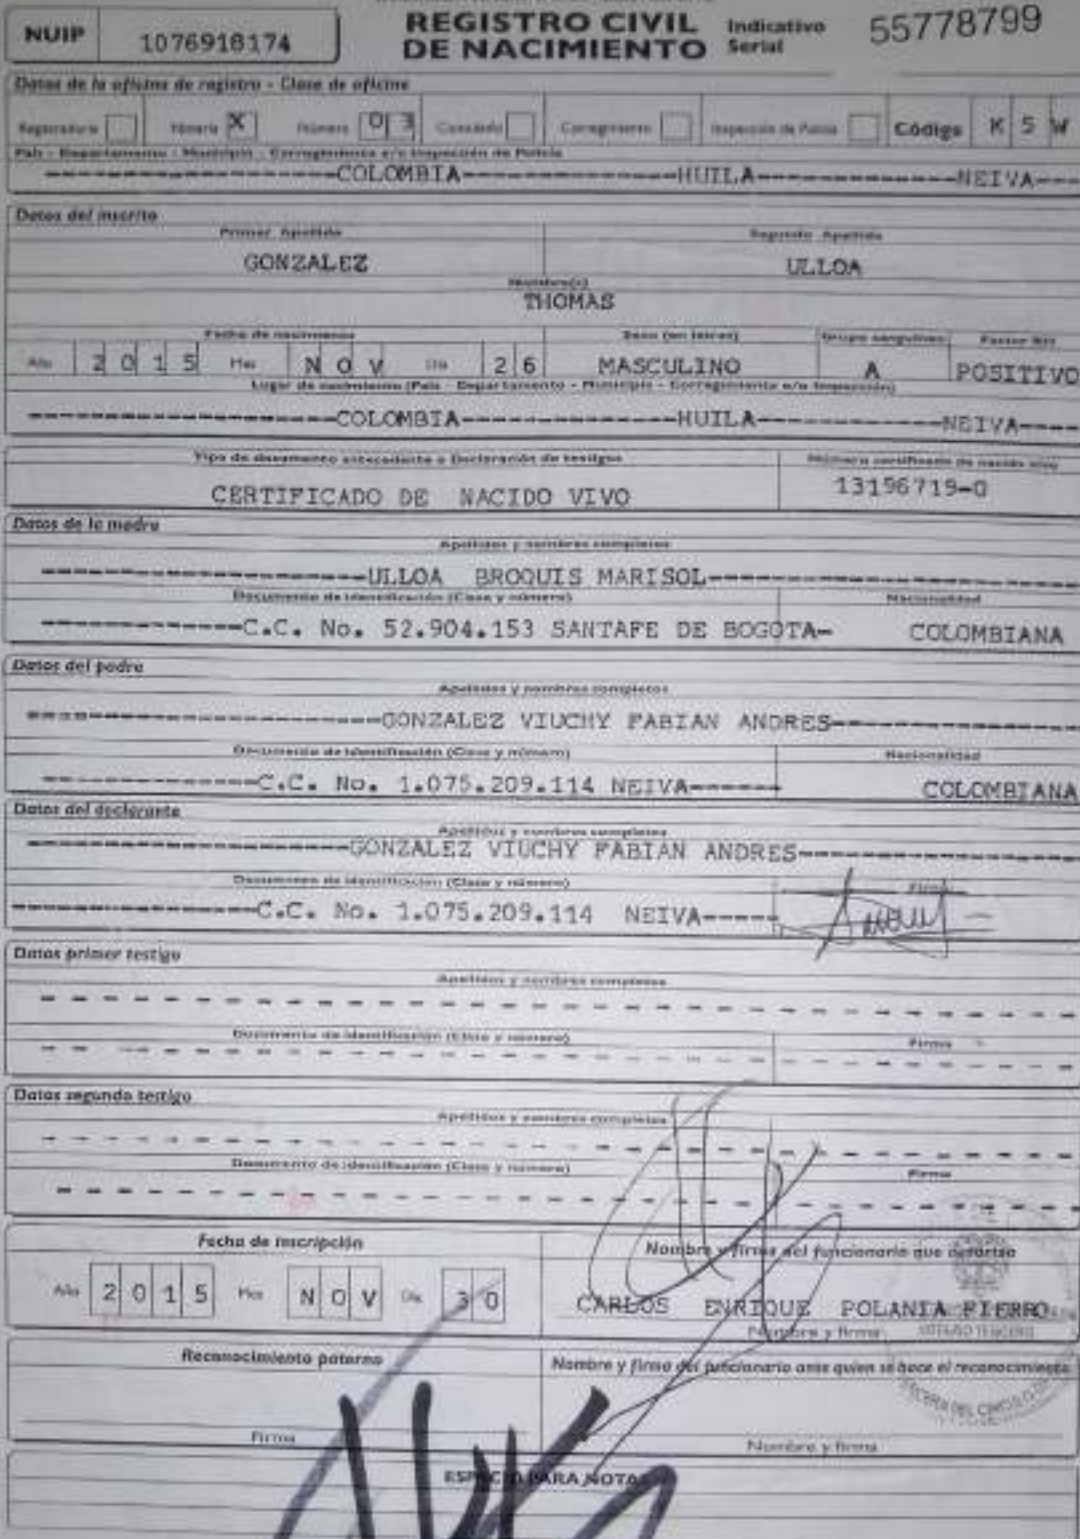 REGISTRO CIVIL
DE NACIMIENTO
Indicativo
Serial
55778799
NUIP 1076918174
Datos de la oficina de registro - Clase de oficina
Registraduría Notaría X Número 0 3 Consulado Corregimiento Inspección de Policía Código K 5 W
País - Departamento - Municipio - Corregimiento e/o Inspección de Policía
COLOMBIA HUILA NEIVA
Datos del inscrito
Primer Apellido Segundo Apellido
GONZALEZ ULLOA
Nombre(s)
THOMAS
Fecha de nacimiento Sexo (en letras) Grupo sanguíneo Factor RH
Año 2 0 1 5 Mes N O V Día 2 6 MASCULINO A POSITIVO
Lugar de nacimiento (País - Departamento - Municipio - Corregimiento e/o Inspección)
COLOMBIA HUILA NEIVA
Tipo de documento antecedente o Declaración de testigos Número certificado de nacido vivo
CERTIFICADO DE NACIDO VIVO 13196719-0
Datos de la madre
Apellidos y nombres completos
ULLOA BROQUIS MARISOL
Documento de identificación (Clase y número) Nacionalidad
C.C. No. 52.904.153 SANTAFE DE BOGOTA- COLOMBIANA
Datos del padre
Apellidos y nombres completos
GONZALEZ VIUCHY FABIAN ANDRES
Documento de identificación (Clase y número) Nacionalidad
C.C. No. 1.075.209.114 NEIVA COLOMBIANA
Datos del declarante
Apellidos y nombres completos
GONZALEZ VIUCHY FABIAN ANDRES
Documento de identificación (Clase y número) Firma
C.C. No. 1.075.209.114 NEIVA
Datos primer testigo
Apellidos y nombres completos
Documento de identificación (Clase y número) Firma
Datos segundo testigo
Apellidos y nombres completos
Documento de identificación (Clase y número) Firma
Fecha de inscripción Nombre y firma del funcionario que autoriza
Año 2 0 1 5 Mes N O V Día 3 0 CARLOS ENRIQUE POLANIA FIERRO
Nombre y firma NOTARIO TERCERO
Reconocimiento paterno Nombre y firma del funcionario ante quien se hace el reconocimiento
Firma Nombre y firma
ESPACIO PARA NOTAS